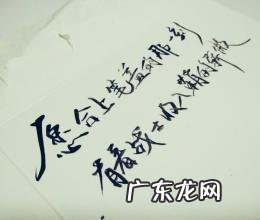 愿合上笔盖的那刻
有着战士收入鞘的骄傲
广东龙网